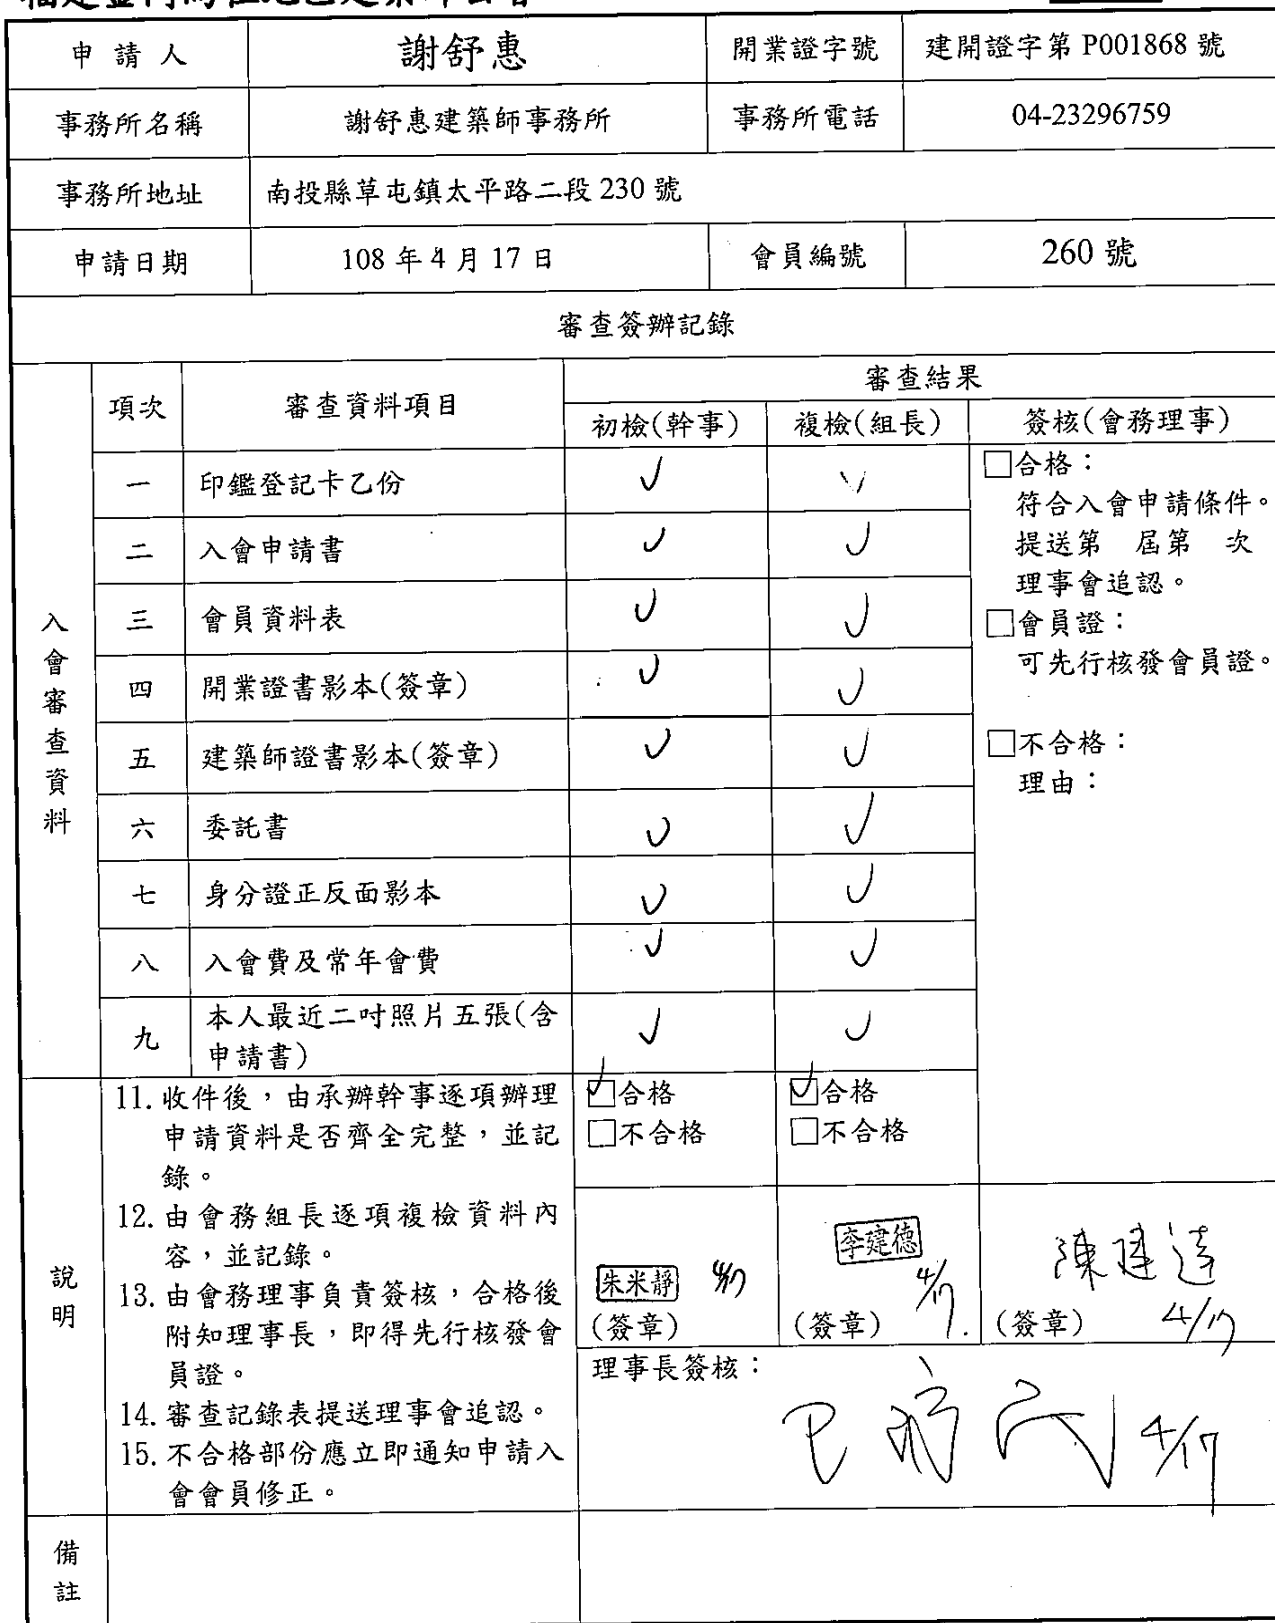 申請人 謝舒惠 開業證字號 建開證字第 P001868 號
事務所名稱 謝舒惠建築師事務所 事務所電話 04-23296759
事務所地址 南投縣草屯鎮太平路二段 230 號
申請日期 108 年 4 月 17 日 會員編號 260 號
審查簽辦記錄
入會審查資料
項次 審查資料項目 審查結果
初檢(幹事) 複檢(組長) 簽核(會務理事)
一 印鑑登記卡乙份
二 入會申請書
三 會員資料表
四 開業證書影本(簽章)
五 建築師證書影本(簽章)
六 委託書
七 身分證正反面影本
八 入會費及常年會費
九 本人最近二吋照片五張(含
申請書)
合格：
符合入會申請條件。
提送第 屆第 次
理事會追認。
會員證：
可先行核發會員證。
不合格：
理由：
說明
11. 收件後，由承辦幹事逐項辦理
申請資料是否齊全完整，並記
錄。
12. 由會務組長逐項複檢資料內
容，並記錄。
13. 由會務理事負責簽核，合格後
附知理事長，即得先行核發會
員證。
14. 審查記錄表提送理事會追認。
15. 不合格部份應立即通知申請入
會會員修正。
合格
不合格
合格
不合格
朱米靜 4/17
(簽章)
李建德 4/17.
(簽章)
陳建達
(簽章) 4/17
理事長簽核：
4/17
備註